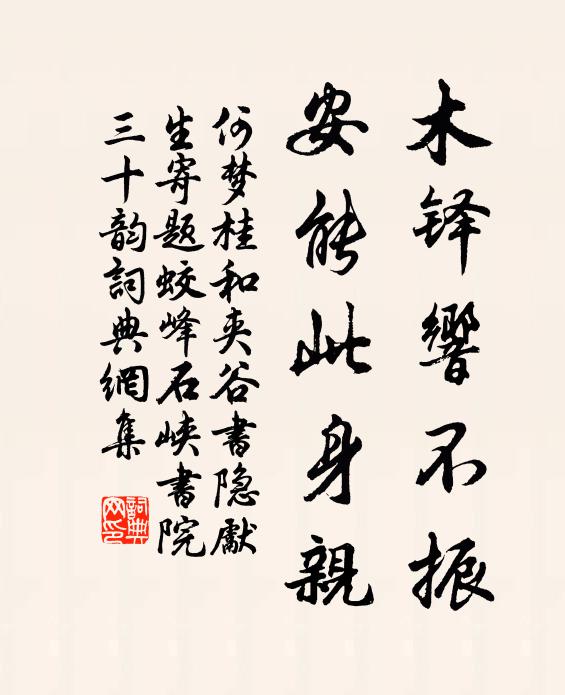 木铎響不振
安能此身親
何梦桂和夹谷書隐獻
生寄题蛟峰石峡書院
三十韵詞典網集
詞典网印